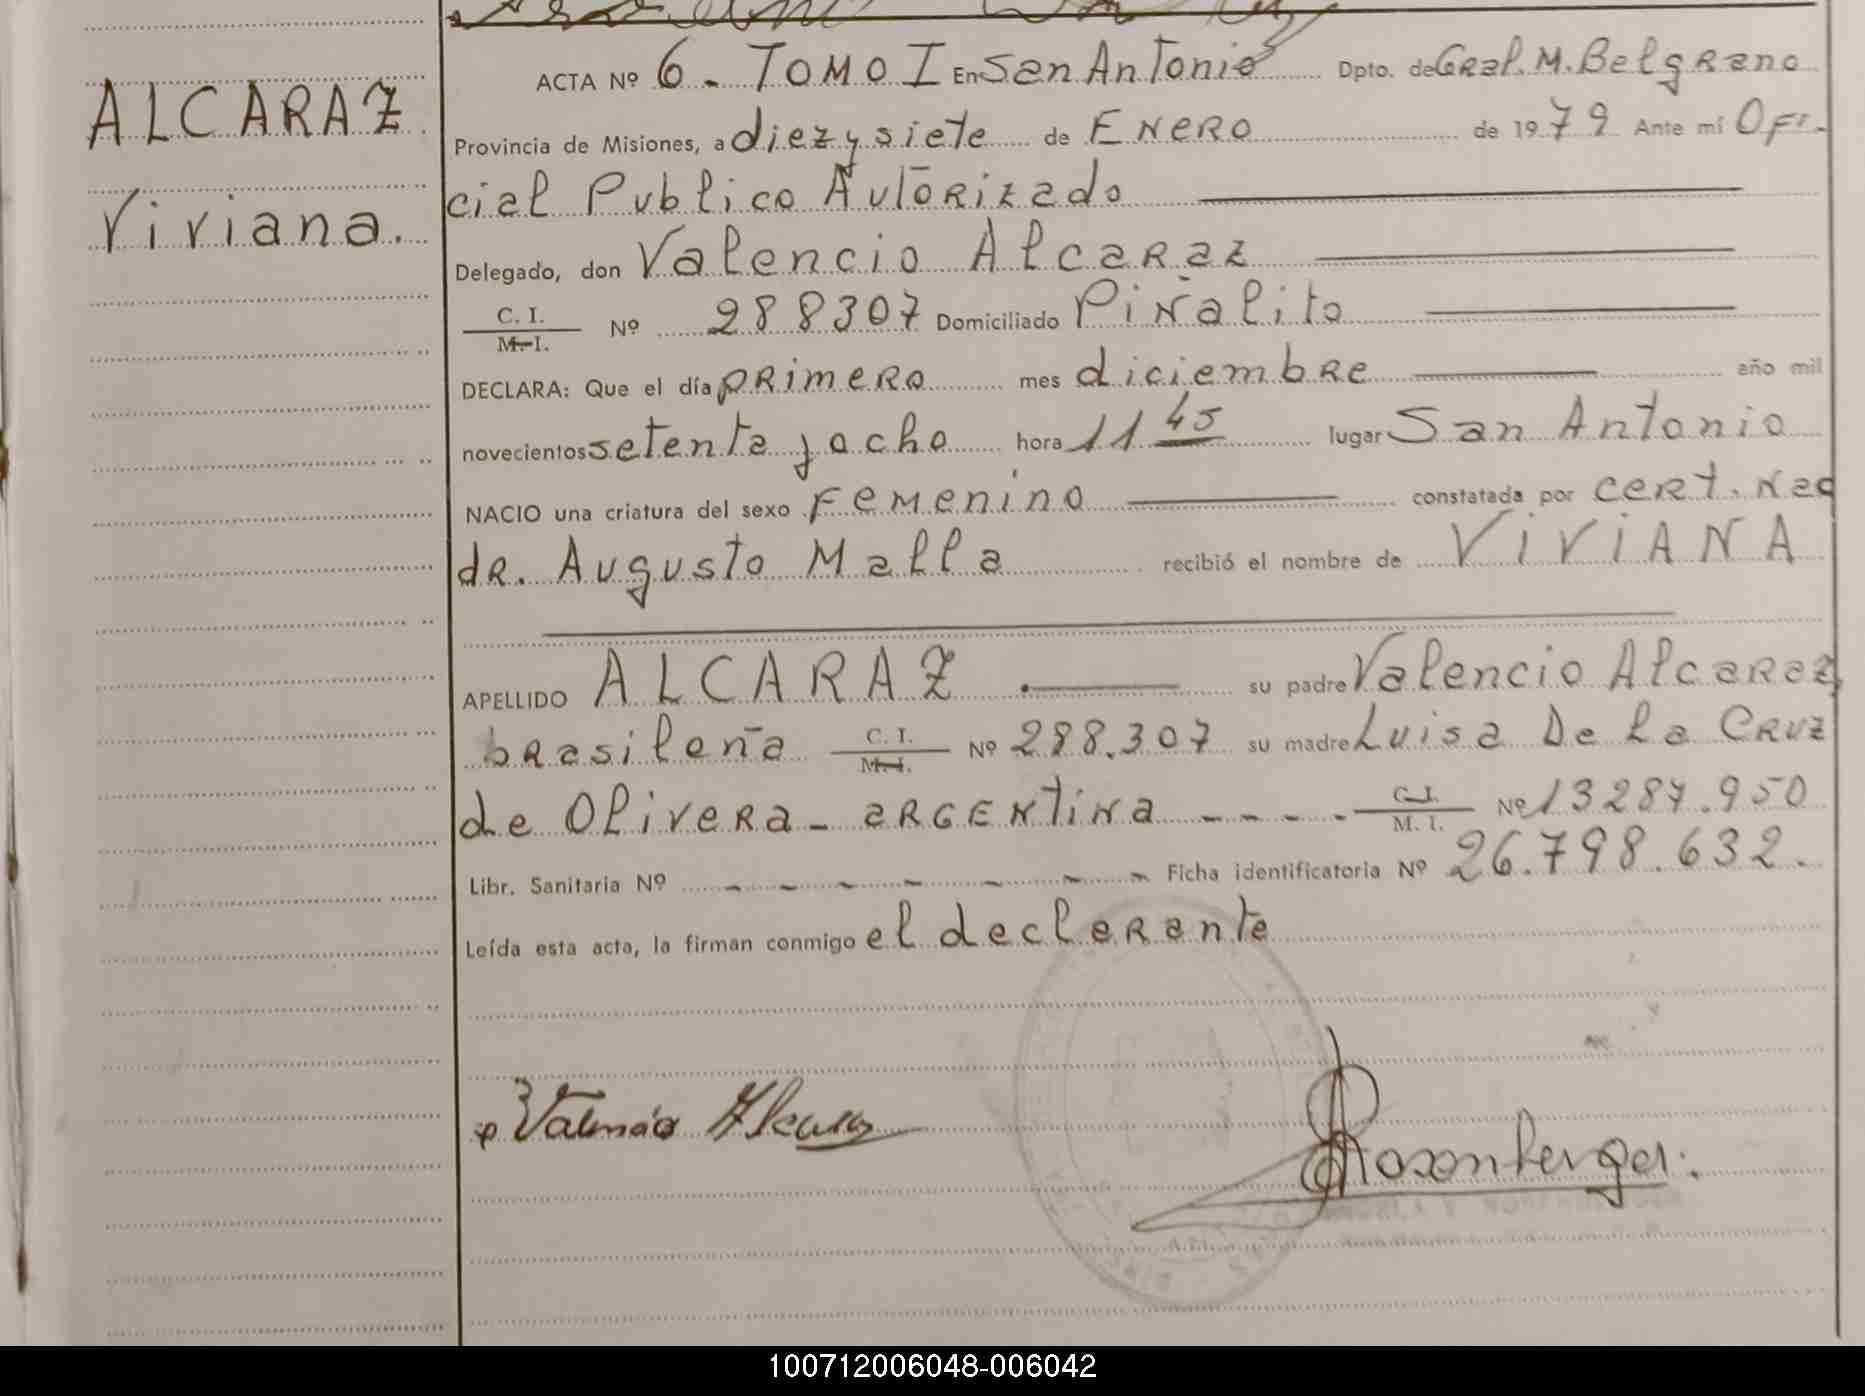 ALCARAZ
Viviana.
ACTA Nº 6 - TOMO I En San Antonio Dpto. de Gral. M. Belgrano
Provincia de Misiones, a diez y siete de ENERO de 1979 Ante mí Ofi-
cial Publico Autorizado
Delegado, don Valencio Alcaraz
C. I. M. I. Nº 288307 Domiciliado Piñalito
DECLARA: Que el día primero mes diciembre año mil
novecientos setenta y ocho hora 11 45 lugar San Antonio
NACIO una criatura del sexo Femenino constatada por cert. Nac
dr. Augusto Malla recibió el nombre de VIVIANA
APELLIDO ALCARAZ su padre Valencio Alcaraz,
brasileña C. I. M. I. Nº 288.307 su madre Luisa De La Cruz
de Olivera - ARGENtina - - - - C. I. M. I. Nº 13287.950
Libr. Sanitaria Nº - - - - - - - Ficha identificatoria Nº 26.798.632.
Leída esta acta, la firman conmigo el declarante
Valencio Alcaraz
Rosenberger.
100712006048-006042